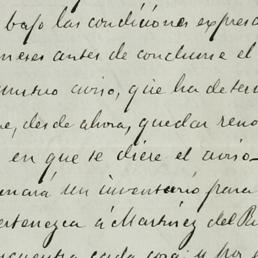 bajo las condiciones expresa
meses antes de concluirse el
nuestro aviso, que ha de ter
e, desde ahora, quedar reno
en que se diere el aviso_
mará un inventario para
ertenezca á Martínez del Rí
cuentra cada cosa y por e